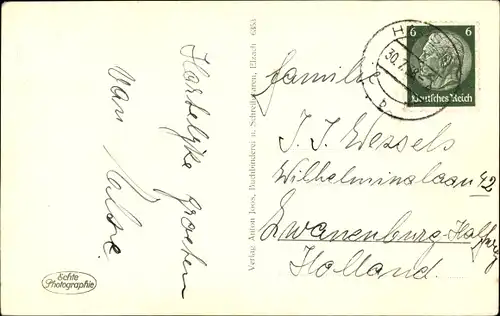 Hartelijke groeten
van
Echte
Photographie
Verlag Anton Joos, Buchbinderei u. Schreibwaren, Elzach
6
6
Deutsches Reich
30.7.
b
familie
J. J. Wessels
Wilhelminalaan 42
Zwanenburg-Halfweg
Holland.